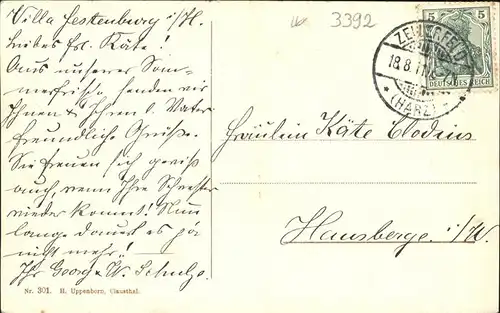 Villa Festenburg i/H.
Liebes Frl. Käte!
Aus unserer Som-
merfrische senden wir
Ihnen & Ihrem l. Vater
freundliche Grüße.
Sie freuen sich gewiß
auch, wenn Ihre Schwester
wieder kommt! Nun
lange dauert es ja
nicht mehr!
Ihr Georg & W. Schulze.
Nr. 301. H. Uppenborn, Clausthal.
3392
5 5
DEUTSCHES REICH
ZELLERFELD
18.8.11
(HARZ)
Fräulein Käte Clodius
Hausberge i/W.